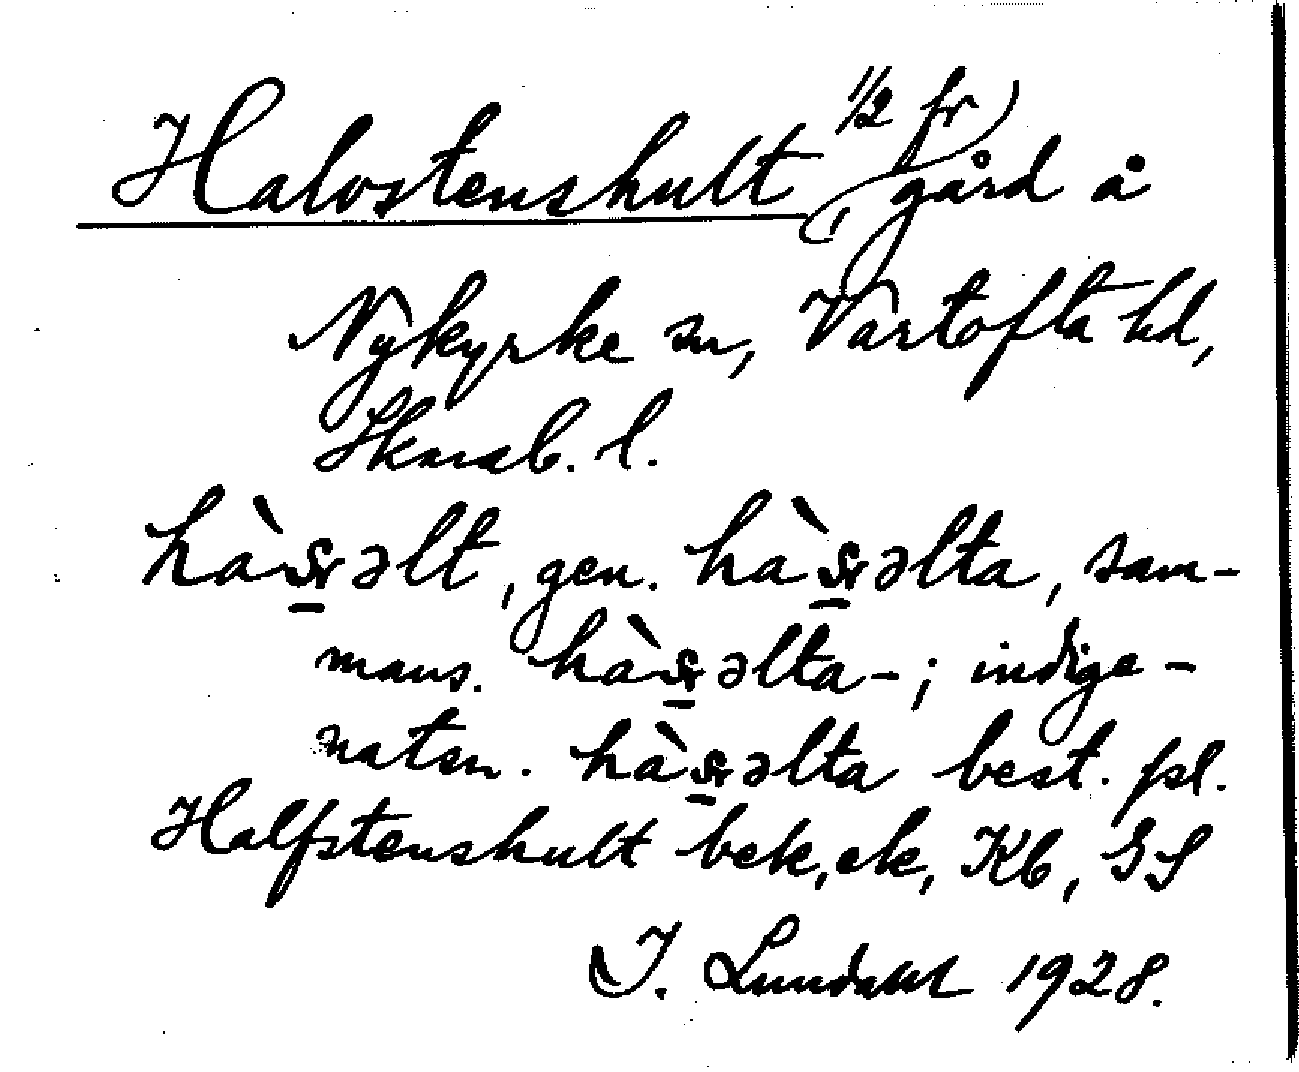 Halvstenshult, 1/2 fr gård å
Nykyrke sn, Vartofta hd,
Skarab. l.
hàs̠əlt, gen. hàs̠əlta, sam-
mans. hàs̠əlta-; indige-
naten. hàs̠əlta best. pl.
Halfstenshult bek, ek, Kb, GS
I. Lundahl 1928.